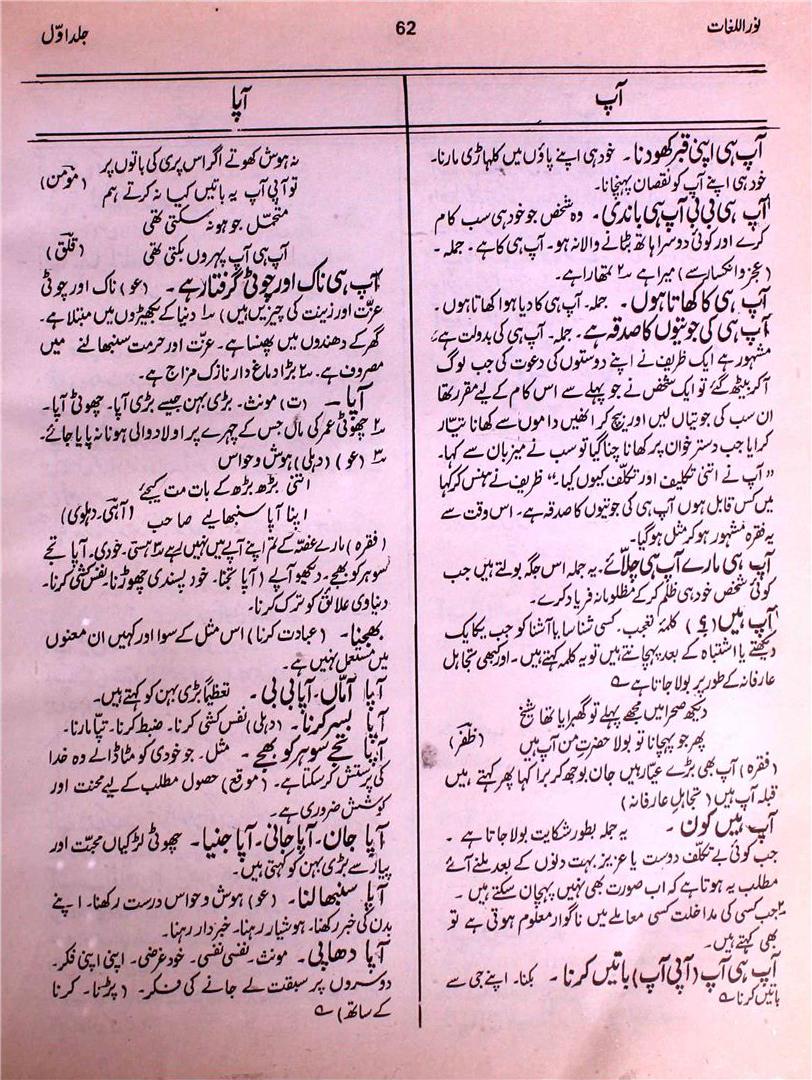 نور اللغات
62
جلد اوّل
آپ
آپ ہی اپنی قبر کھودنا۔ خود ہی اپنے پاؤں میں کلہاڑی مارنا۔
خود ہی اپنے آپ کو نقصان پہنچانا۔
آپ ہی بی بی آپ ہی باندی۔ وہ شخص جو خود ہی سب کام
کرے اور کوئی دوسرا ہاتھ بٹانے والا نہ ہو۔ آپ ہی کا ہے۔ جملہ۔
(عجز و انکسار سے) میرا ہے ۲؎ تمھارا ہے۔
آپ ہی کا کھاتا ہوں۔ جملہ۔ آپ ہی کا دیا ہوا کھاتا ہوں۔
آپ ہی کی جوتیوں کا صدقہ ہے۔ جملہ۔ آپ ہی کی بدولت ہے،
مشہور ہے ایک ظریف نے اپنے دوستوں کی دعوت کی جب لوگ
آکر بیٹھ گئے تو ایک شخص نے جو پہلے سے اس کام کے لیے مقرر تھا
ان سب کی جوتیاں لیں اور بیچ کر انھیں داموں سے کھانا تیّار
کرایا جب دستر خوان پر کھانا چنا گیا تو سب نے میزبان سے کہا۔
”آپ نے اتنی تکلیف اور تکلّف کیوں کیا۔“ ظریف نے ہنس کر کہا
میں کس قابل ہوں آپ ہی کی جوتیوں کا صدقہ ہے۔ اس وقت سے
یہ فقرہ مشہور ہو کر مثل ہو گیا۔
آپ ہی مارے آپ ہی چلّائے۔ یہ جملہ اس جگہ بولتے ہیں جب
کوئی شخص خود ہی ظلم کر کے مظلومانہ فریاد کرے۔
آپ ہیں (؟) کلمۂ تعجب۔ کسی شناسا یا آشنا کو جب یکایک
دیکھتے یا اشتباہ کے بعد پہچانتے ہیں تو یہ کلمہ کہتے ہیں۔ اور کبھی تجاہل
عارفانہ کے طور پر بولا جاتا ہے ؎
دیکھ صحرا میں مجھے پہلے تو گھبرایا تھا شیخ
پھر جو پہچانا تو بولا حضرتِ من آپ ہیں (ظفر)
(فقرہ) آپ بھی بڑے عیّار ہیں جان بوجھ کر برا کہا پھر کہتے ہیں
قبلہ آپ ہیں (تجاہلِ عارفانہ)
آپ ہیں کون۔ یہ جملہ بطور شکایت بولا جاتا ہے۔
جب کوئی بے تکلّف دوست یا عزیز بہت دنوں کے بعد ملنے آئے
مطلب یہ ہوتا ہے کہ اب صورت بھی نہیں پہچان سکتے ہیں۔
۲؎ جب کسی کی مداخلت کسی معاملے میں ناگوار معلوم ہوتی ہے تو
بھی کہتے ہیں۔
آپ ہی آپ (آپی آپ) باتیں کرنا۔ بکنا۔ اپنے جی سے
باتیں کرنا ؎
آپا
نہ ہوش کھوتے اگر اس پری کی باتوں پر
تو آپی آپ یہ باتیں کیا نہ کرتے ہم (مومن)
متحمّل جو ہو نہ سکتی تھی
آپ ہی آپ پہروں بکتی تھی (قلق)
آپ ہی ناک اور چوٹی گرفتار ہے۔ (عو) ناک اور چوٹی
عزّت اور زینت کی چیزیں ہیں) ۱؎ دنیا کے بکھیڑوں میں مبتلا ہے۔
گھر کے دھندوں میں پھنسا ہے۔ عزّت اور حرمت سنبھالنے میں
مصروف ہے۔ ۲؎ بڑا دماغ دار نازک مزاج ہے۔
آپا۔ (ت) مونث۔ بڑی بہن جیسے بڑی آپا۔ چھوٹی آپا۔
۲؎ چھوٹی عمر کی ماں جس کے چہرے پر اولاد والی ہونا نہ پایا جائے۔
۳؎ (عو) (دہلی) ہوش و حواس
اتنی بڑھ بڑھ کے بات مت کیجے
اپنا آپا سنبھالیے صاحب (آہی۔ دہلوی)
(فقرہ) مارے غصّہ کے تم اپنے آپے میں نہیں ہے ۴؎ ہستی۔ خودی۔ آپا تجے
سو ہر کو بھجے۔ دیکھو آپے (آپا تجنا۔ خود پسندی چھوڑنا۔ نفس کشی کرنا۔
دنیاوی علائق کو ترک کرنا۔
بھجنا۔ (عبادت کرنا) اس مثل کے سوا اور کہیں ان معنوں
میں مستعمل نہیں ہے۔
آپا امّاں۔ آپا بی بی۔ تعظیماً بڑی بہن کو کہتے ہیں۔
آپا بسر کرنا۔ (دہلی) نفس کشی کرنا۔ ضبط کرنا۔ تپّا مارنا۔
آپا تجے سو ہر کو بھجے۔ مثل۔ جو خودی کو مٹا ڈالے وہ خدا
کی پرستش کر سکتا ہے۔ (موقع) حصول مطلب کے لیے محنت اور
کوشش ضروری ہے۔
آپا جان۔ آپا جانی۔ آپا جنیا۔ چھوٹی لڑکیاں محبّت اور
پیار سے بڑی بہن کو کہتی ہیں۔
آپا سنبھالنا۔ (عو) ہوش و حواس درست رکھنا۔ اپنے
بدن کی خبر رکھنا۔ ہوشیار رہنا۔ خبردار رہنا۔
آپا دھاپی۔ مونث۔ نفسی نفسی۔ خود غرضی۔ اپنی اپنی فکر۔
دوسروں پر سبقت لے جانے کی فکر۔ (پڑنا۔ کرنا
کے ساتھ) ؎